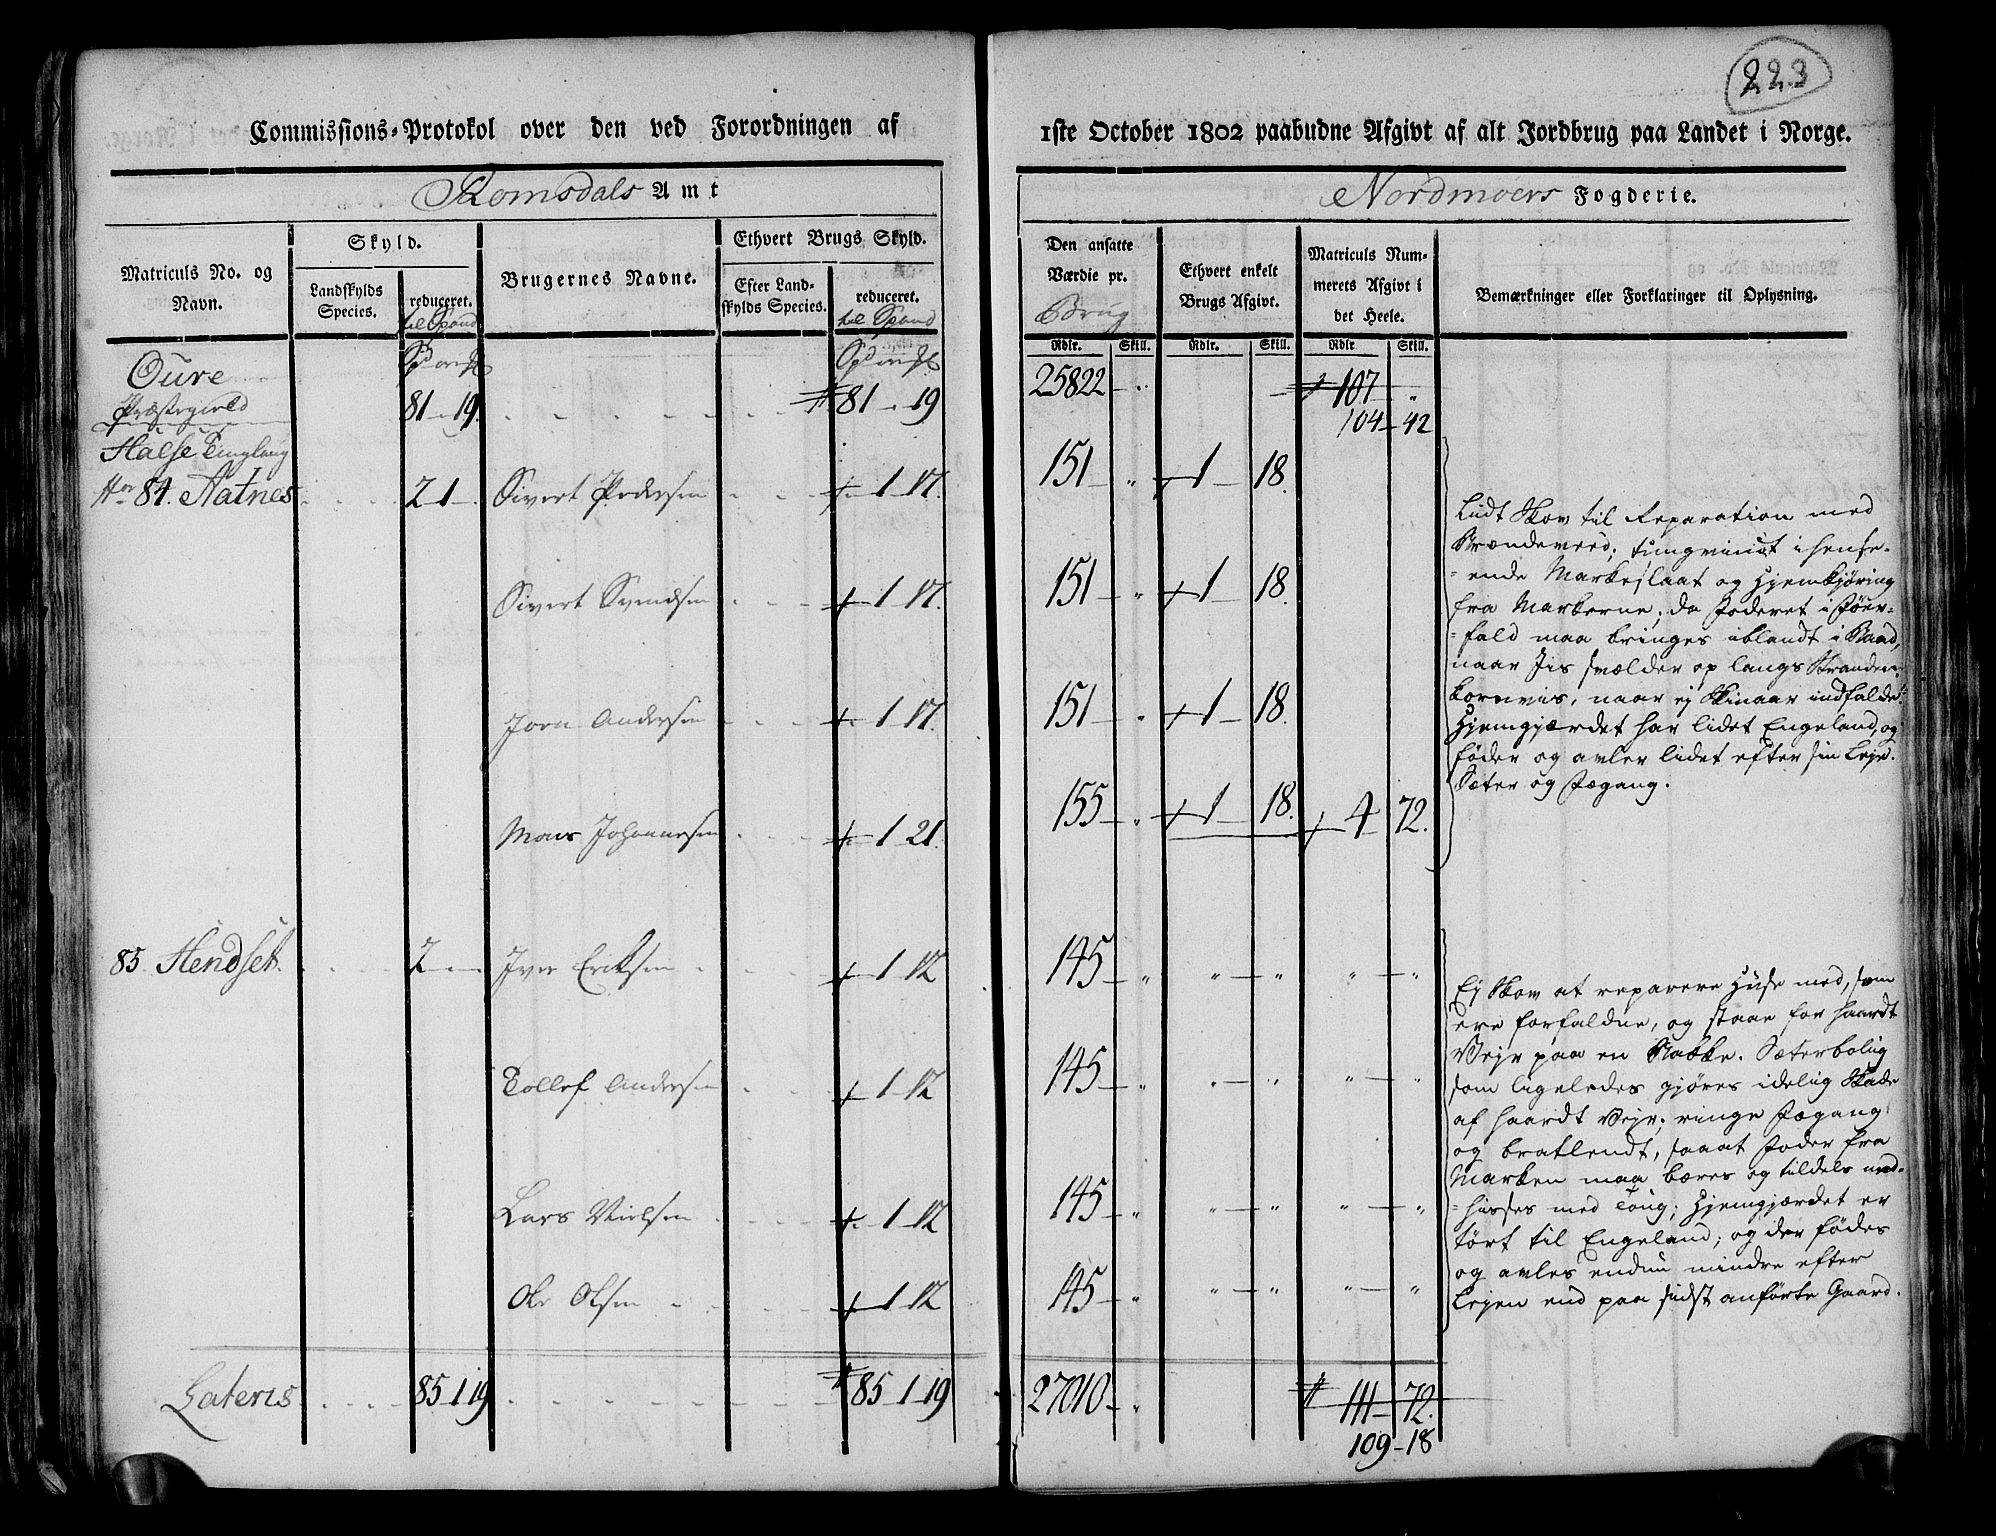 223
Commissions-Protokol over den ved Forordningen af 1ste October 1802 paabudne Afgivt af alt Jordbrug paa Landet i Norge.
Romsdals Amt
Nordmoers Fogderie.
Matriculs No. og Navn.
Skyld.
Landskylds Species.
reduceret. til Spand
Brugernes Navne.
Ethvert Brugs Skyld.
Efter Landskylds Species.
reduceret. til Spand
Den ansatte Værdie pr. Brug
Ethvert enkelt Brugs Afgivt.
Matriculs Nummerets Afgivt i det Heele.
Bemærkninger eller Forklaringer til Oplysning.
Rdlr. Skill. Rdlr. Skill. Rdlr Skill.
Oure
Præstegield 81 - 19. 81 - 19 25822 107
104 - 42
Halse Tinglaug
84. Aatnes 2 1 Sivert Pedersen 1 17. 151 1 18.
Sivert Svendsen 1 17. 151 1 18.
Jorn Andersen 1 17. 151 1 18.
Mons Johannesen 1 21. 155 1 18. 4 72.
Lidt Skov til Reparation med
Brændeveed; tungvindt i hense-
ende Markeslaat og Hjemkjøring
fra Markerne; da Foderet i
fald maa bringes iblandt i Baad,
naar Jis vælder op langs Stranden;
kornvis, naar ej Skinaar indfalder.
Hjemgjærdet har lidet Engeland, og
føder og avler lidet efter sin Leje.
Sæter og Fægang.
85. Hendset. 2 Iver Eriksen 1 12 145
Tollef Andersen 1 12 145
Lars Nielsen 1 12 145
Ole Olsen 1 12 145
Ej Skov at reparere Huse med, som
ere forfaldne, og staae for haardt
Vejr paa en Bakke. Sæterbolig
som ligeledes gjøres idelig Skade
af haardt Vejr; ringe Fægang
og bratlendt, saaat Foder fra
Marken maa bæres og tildels ned-
hisses med Toug; Hjemgjærdet er
tørt til Engeland; og der fødes
og avles endnu mindre efter
Lejen end paa sidst anførte Gaard.
Lateris 85 1 19 85 1 19 27010 111 - 72.
109 - 18